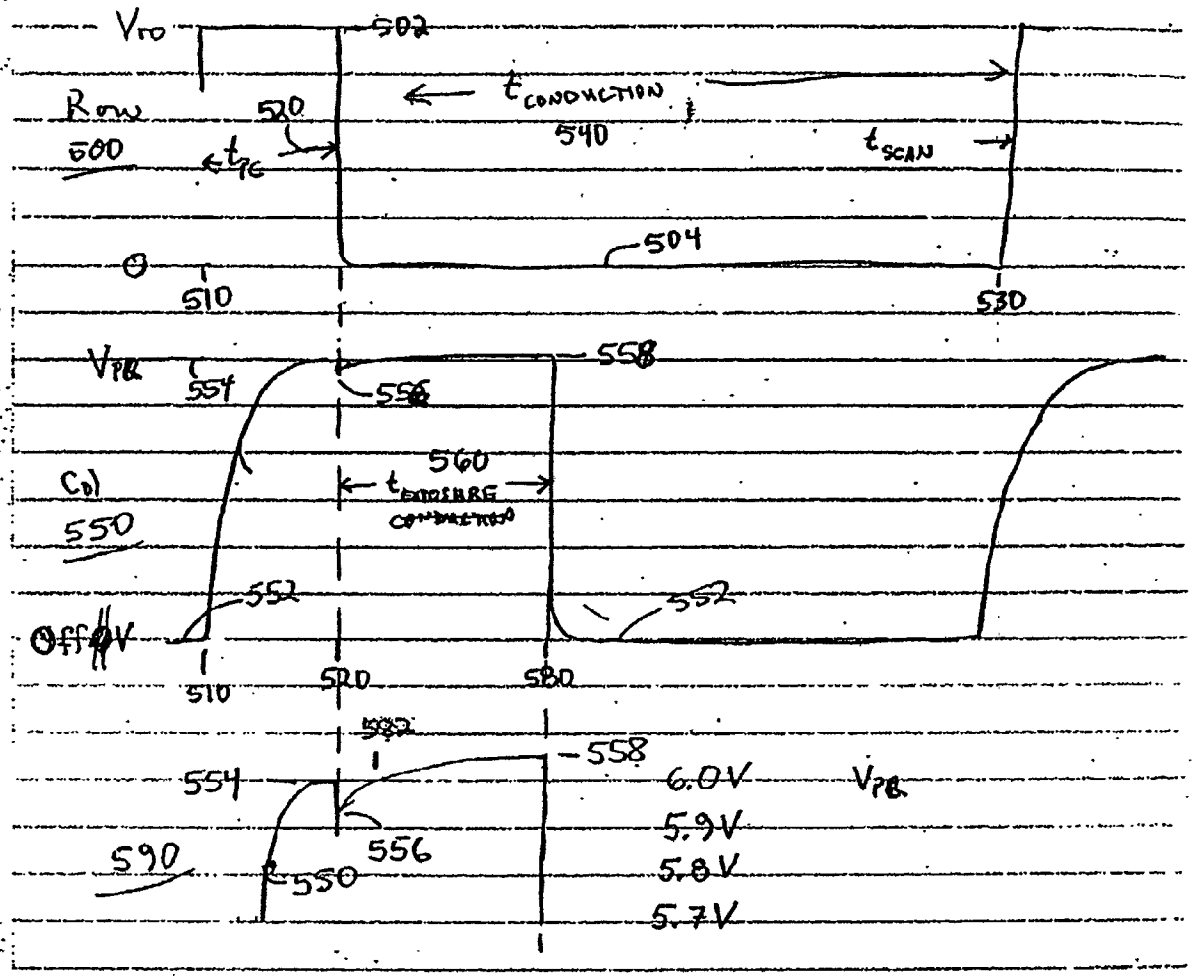 Vro 502
← t CONDUCTION →
Row 520 540
500 t SCAN →
504
0
510 530
VPR 558
554 556
560
← t EXPOSURE →
CONDUCTION
550
552 552
Off 0V
510 520 580
582
554 558 6.0V VPR
556 5.9V
590 550 5.8V
5.7V